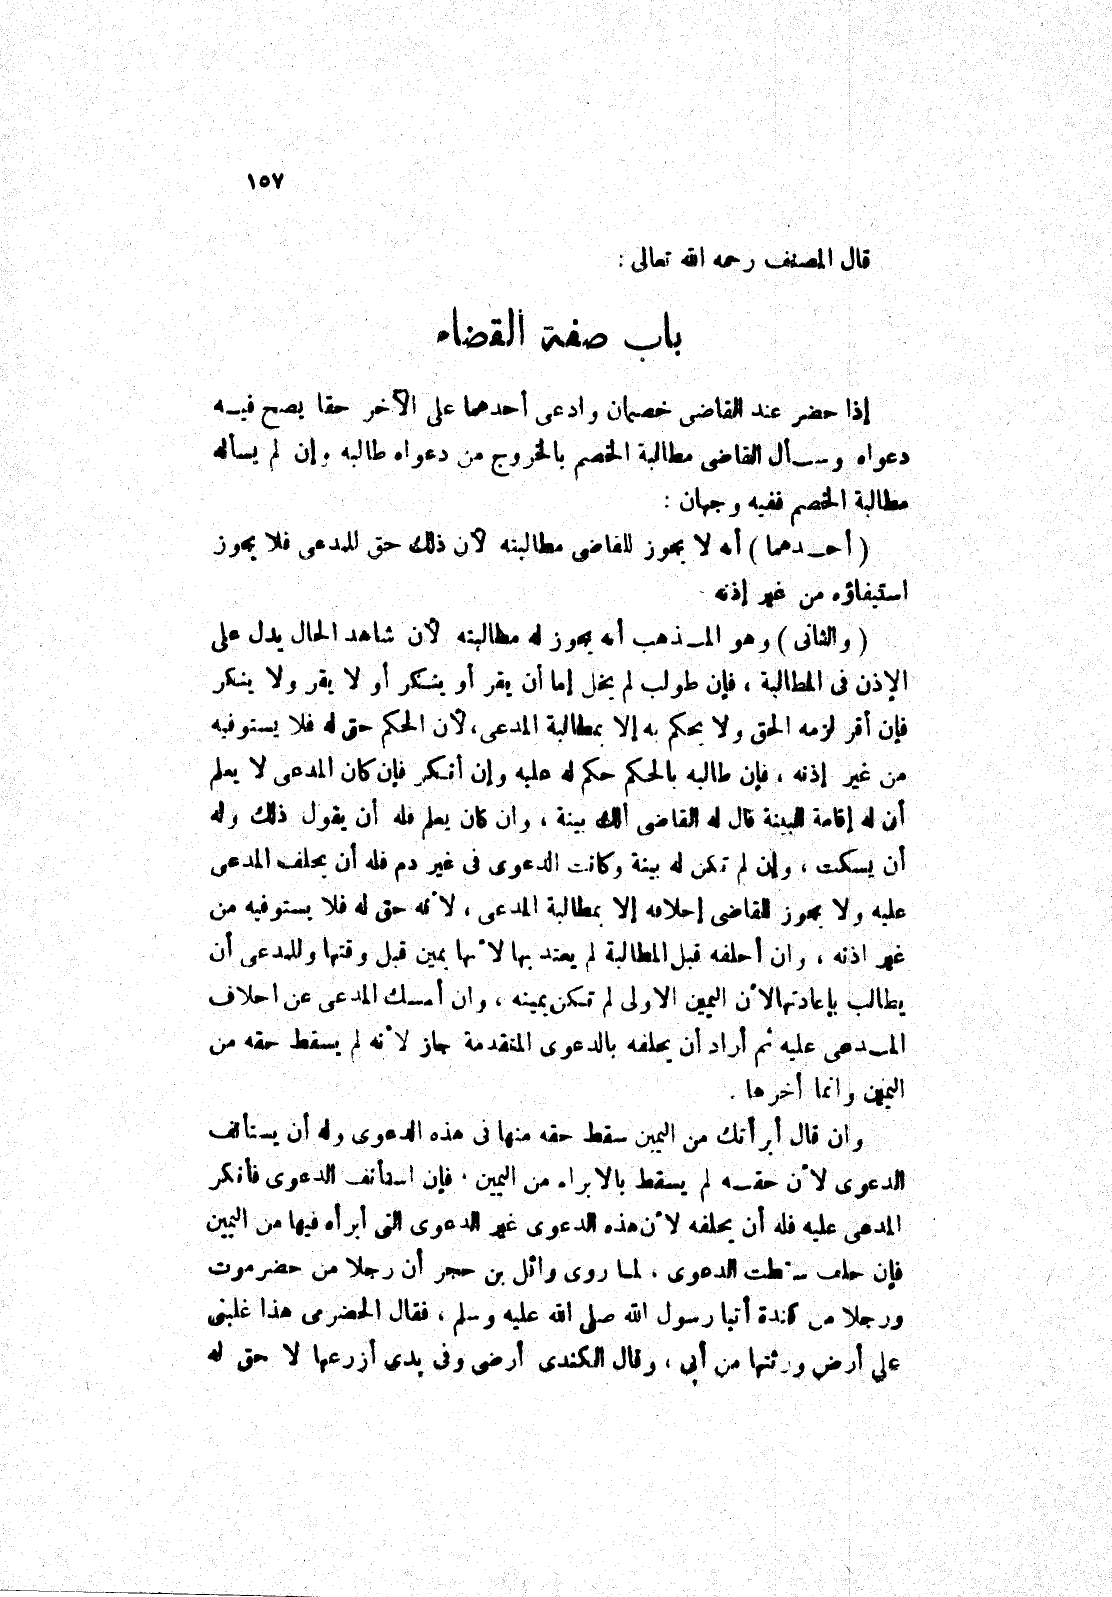 ١٥٧
قال المصنف رحمه الله تعالى :
باب صفة القضاء
إذا حضر عند القاضى خصمان وادعى أحدهما على الآخر حقا يصح فيه
دعواه وسأل القاضى مطالبة الخصم بالخروج من دعواه طالبه وإن لم يسأله
مطالبة الخصم ففيه وجهان :
( أحدهما ) أنه لا يجوز للقاضى مطالبته لأن ذلك حق للمدعى فلا يجوز
استيفاؤه من غير إذنه
( والثانى ) وهو المذهب أنه يجوز له مطالبته لأن شاهد الحال يدل على
الإذن فى المطالبة ، فإن طولب لم يخل إما أن يقر أو ينكر أو لا يقر ولا ينكر
فإن أقر لزمه الحق ولا يحكم به إلا بمطالبة المدعى، لأن الحكم حق له فلا يستوفيه
من غير إذنه ، فإن طالبه بالحكم حكم له عليه وإن أنكر فإن كان المدعى لا يعلم
أن له إقامة البينة قال له القاضى ألك بينة ، وان كان يعلم فله أن يقول ذلك وله
أن يسكت ، وإن لم تكن له بينة وكانت الدعوى فى غير دم فله أن يحلف المدعى
عليه ولا يجوز للقاضى إحلافه إلا بمطالبة المدعى ، لأنه حق له فلا يستوفيه من
غير اذنه ، وان أحلفه قبل المطالبة لم يعتد بها لأنها يمين قبل وقتها وللمدعى أن
يطالب بإعادتها لأن اليمين الاولى لم تكن يمينه ، وان أمسك المدعى عن احلاف
المدعى عليه ثم أراد أن يحلفه بالدعوى المتقدمة جاز لأنه لم يسقط حقه من
اليمين وانما أخرها .
وان قال أبرأتك من اليمين سقط حقه منها فى هذه الدعوى وله أن يستأنف
الدعوى لأن حقه لم يسقط بالابراء من اليمين . فإن استأنف الدعوى فأنكر
المدعى عليه فله أن يحلفه لأن هذه الدعوى غير الدعوى التى أبرأه فيها من اليمين
فإن حلف سقطت الدعوى ، لما روى وائل بن حجر أن رجلا من حضرموت
ورجلا من كندة أتيا رسول الله صلى الله عليه وسلم ، فقال الحضرمى هذا غلبنى
على أرض ورثتها من أبى ، وقال الكندى أرضى وفى يدى أزرعها لا حق له